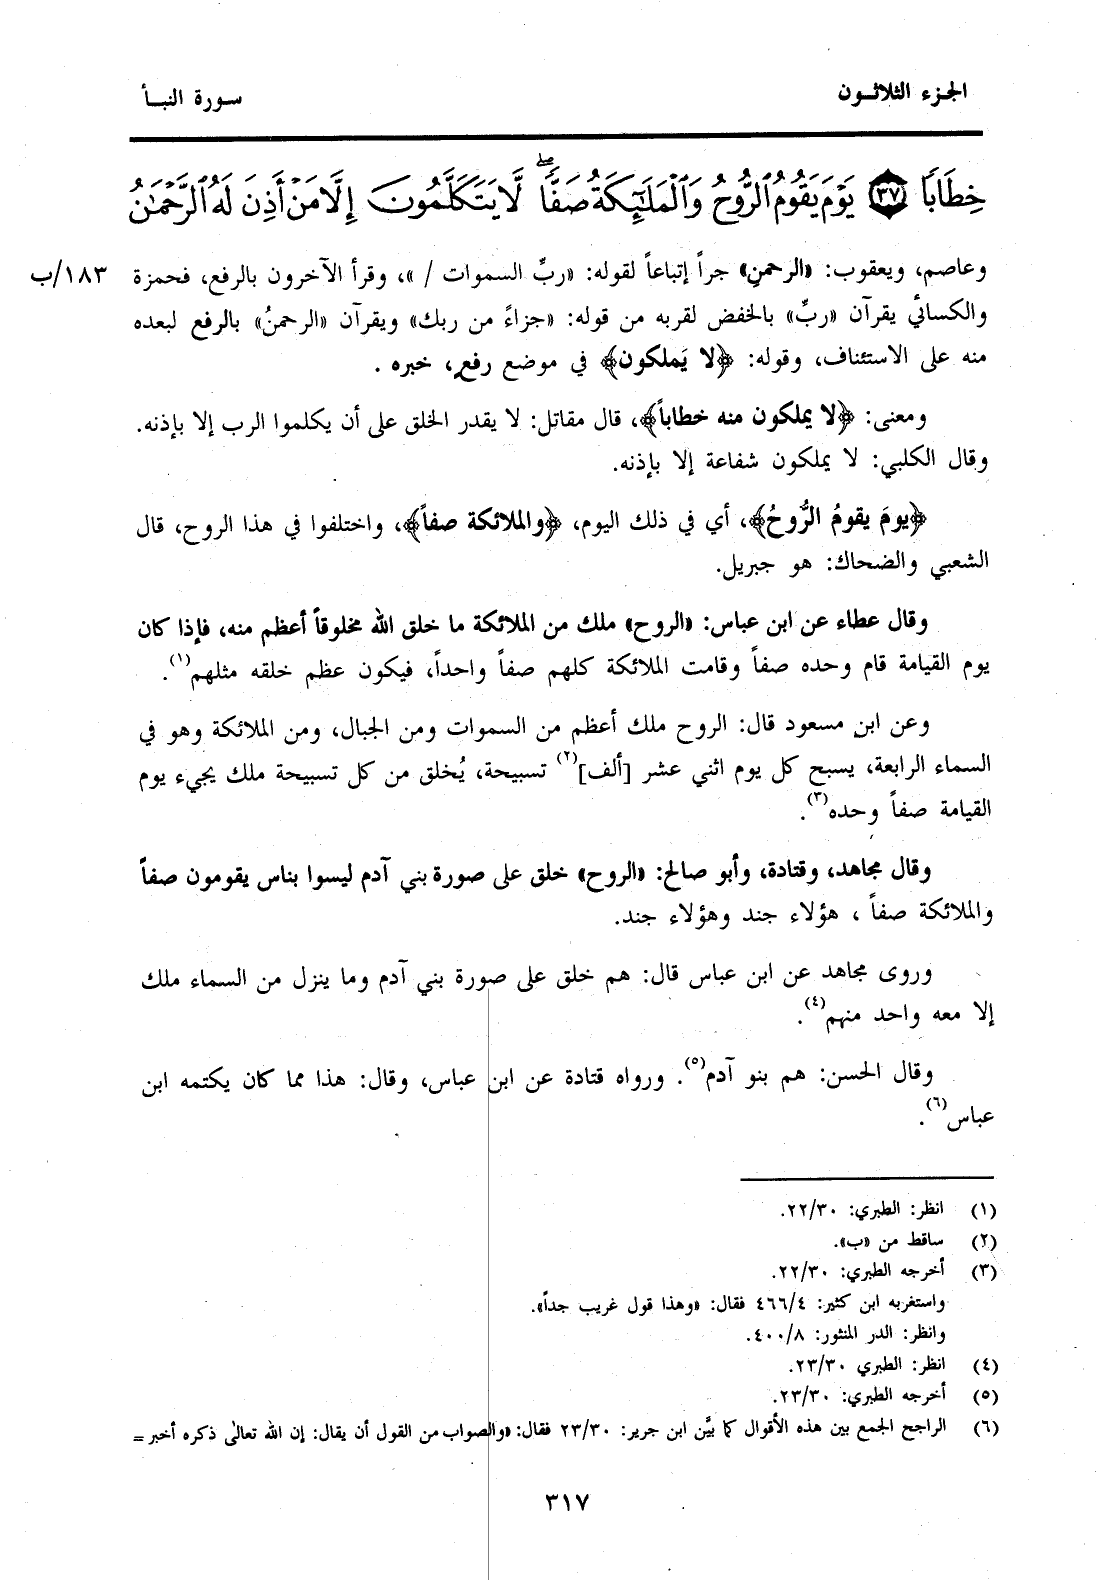 الجزء الثلاثون
سورة النبأ
خِطَابًا ﴿٣٧﴾ يَوْمَ يَقُومُ ٱلرُّوحُ وَٱلْمَلَٰٓئِكَةُ صَفًّاۖ لَّا يَتَكَلَّمُونَ إِلَّا مَنْ أَذِنَ لَهُ ٱلرَّحْمَٰنُ
وعاصم، ويعقوب: «الرحمنِ» جراً إتباعاً لقوله: «ربِّ السموات / »، وقرأ الآخرون بالرفع، فحمزة ١٨٣/ب
والكسائي يقرآن «ربِّ» بالخفض لقربه من قوله: «جزاءً من ربك» ويقرآن «الرحمنُ» بالرفع لبعده
منه على الاستئناف، وقوله: ﴿لا يَملكون﴾ في موضع رفعٍ، خبره .
ومعنى: ﴿لا يملكون منه خطاباً﴾، قال مقاتل: لا يقدر الخلق على أن يكلموا الرب إلا بإذنه.
وقال الكلبي: لا يملكون شفاعة إلا بإذنه.
﴿يومَ يقومُ الرُّوحُ﴾، أي في ذلك اليوم، ﴿والملائكة صفاً﴾، واختلفوا في هذا الروح، قال
الشعبي والضحاك: هو جبريل.
وقال عطاء عن ابن عباس: «الروح» ملك من الملائكة ما خلق الله مخلوقاً أعظم منه، فإذا كان
يوم القيامة قام وحده صفاً وقامت الملائكة كلهم صفاً واحداً، فيكون عظم خلقه مثلهم(١).
وعن ابن مسعود قال: الروح ملك أعظم من السموات ومن الجبال، ومن الملائكة وهو في
السماء الرابعة، يسبح كل يوم اثني عشر [ألف](٢) تسبيحة، يُخلق من كل تسبيحة ملك يجيء يوم
القيامة صفاً وحده(٣).
وقال مجاهد، وقتادة، وأبو صالح: «الروح» خلق على صورة بني آدم ليسوا بناس يقومون صفاً
والملائكة صفاً ، هؤلاء جند وهؤلاء جند.
وروى مجاهد عن ابن عباس قال: هم خلق على صورة بني آدم وما ينزل من السماء ملك
إلا معه واحد منهم(٤).
وقال الحسن: هم بنو آدم(٥). ورواه قتادة عن ابن عباس، وقال: هذا مما كان يكتمه ابن
عباس(٦).
(١) انظر: الطبري: ٢٢/٣٠.
(٢) ساقط من «ب».
(٣) أخرجه الطبري: ٢٢/٣٠.
واستغربه ابن كثير: ٤٦٦/٤ فقال: «وهذا قول غريب جداً».
وانظر: الدر المنثور: ٤٠٠/٨.
(٤) انظر: الطبري ٢٣/٣٠.
(٥) أخرجه الطبري: ٢٣/٣٠.
(٦) الراجح الجمع بين هذه الأقوال كما بيَّن ابن جرير: ٢٣/٣٠ فقال: «والصواب من القول أن يقال: إن الله تعالى ذكره أخبر =
٣١٧